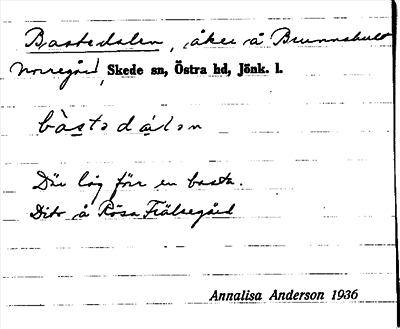 Bastedalen, åker å Brunnshult
Norregård, Skede sn, Östra hd, Jönk. l.
bàstədálən
Där låg förr en basta.
Dito å Rösa Frälsegård
Annalisa Anderson 1936